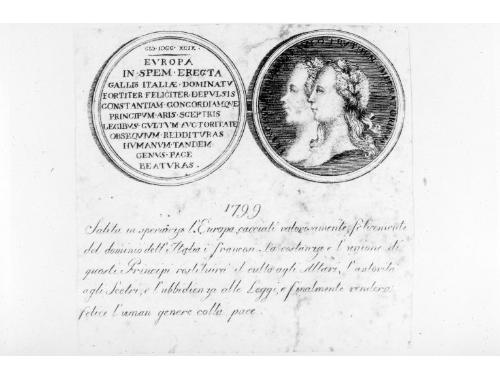 EVROPA
IN · SPEM · ERECTA
GALLIS ITALIÆ · DOMINATV
FORTITER FELICITER · DEPVLSIS
CONSTANTIAM · CONCORDIAMQVE
PRINCIPVM · ARIS · SCEPTRIS
LEGIBVS · CVLTVM AVCTORITATE
OBSEQVIVM · REDDITVRAS
HVMANVM · TANDEM
GENVS · PACE
BEATVRAS .
1799
Salita in speranza l'Europa, cacciati valorosamente, felicemente
del dominio dell'Italia i francesi. La costanza e l'unione di
questi Principi restituirà il culto agli Altari, l'autorità
agli Scetri, e l'ubbidienza alle Leggi, e finalmente renderà
felice l'uman genere colla pace.